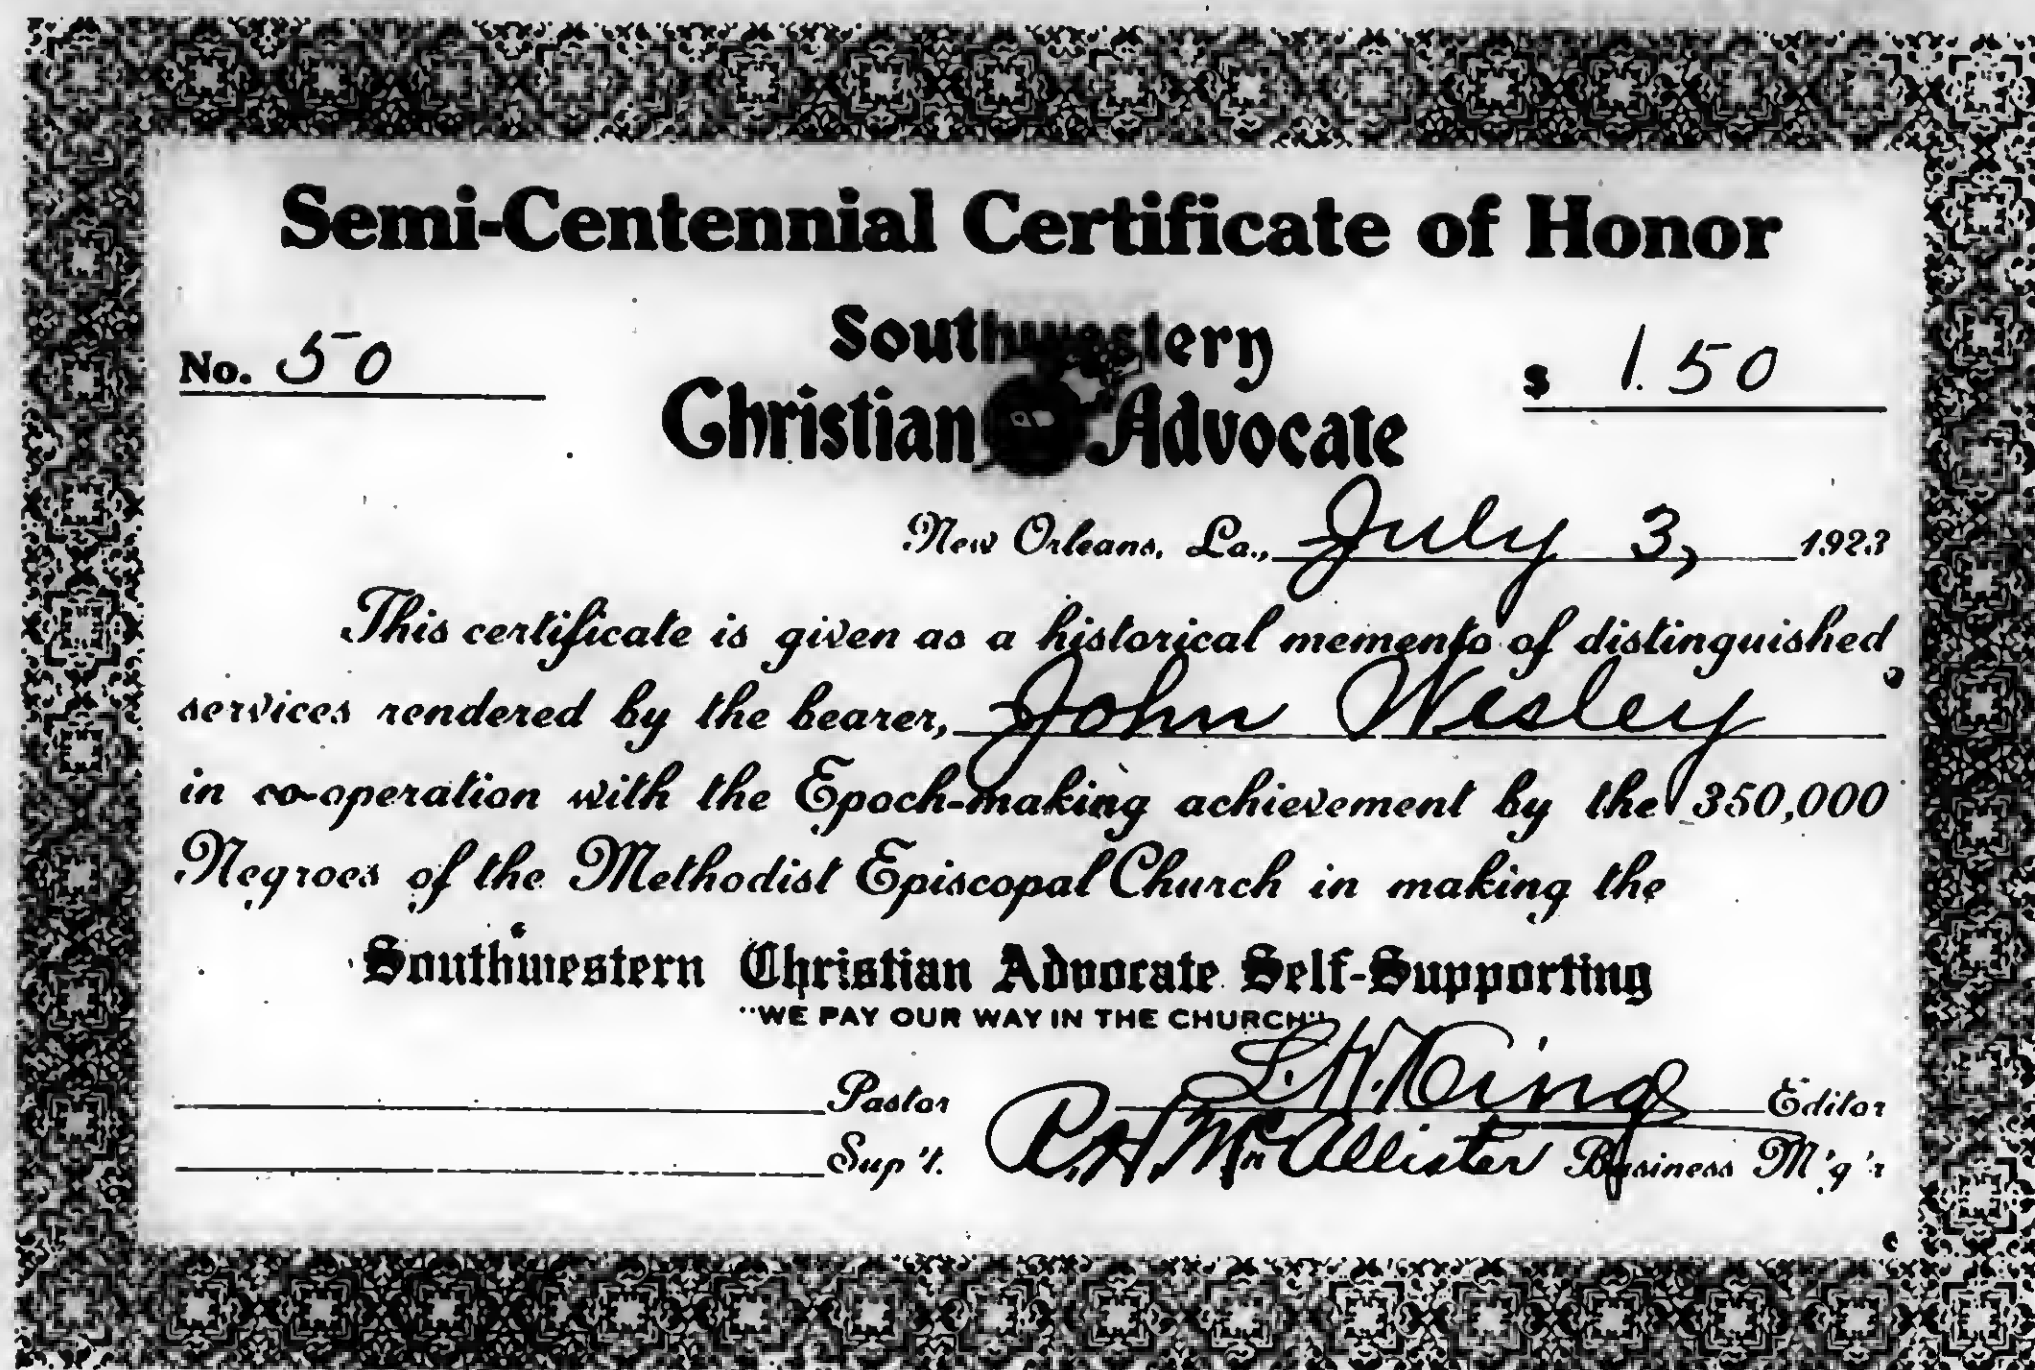 Semi-Centennial Certificate of Honor
No. 50
Southwestern
Christian Advocate
$ 1.50
New Orleans, La., July 3, 1923
This certificate is given as a historical memento of distinguished
services rendered by the bearer, John Wesley
in co-operation with the Epoch-making achievement by the 350,000
Negroes of the Methodist Episcopal Church in making the
Southwestern Christian Advocate Self-Supporting
"WE PAY OUR WAY IN THE CHURCH"
Pastor L.H. King Editor
Sup't. R.H. McAllister Business M'g'r